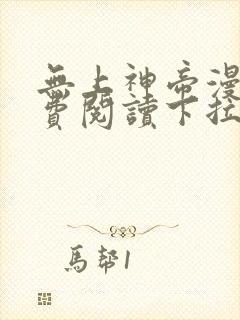 無上神帝漫
費閱讀下拉
馬幇1